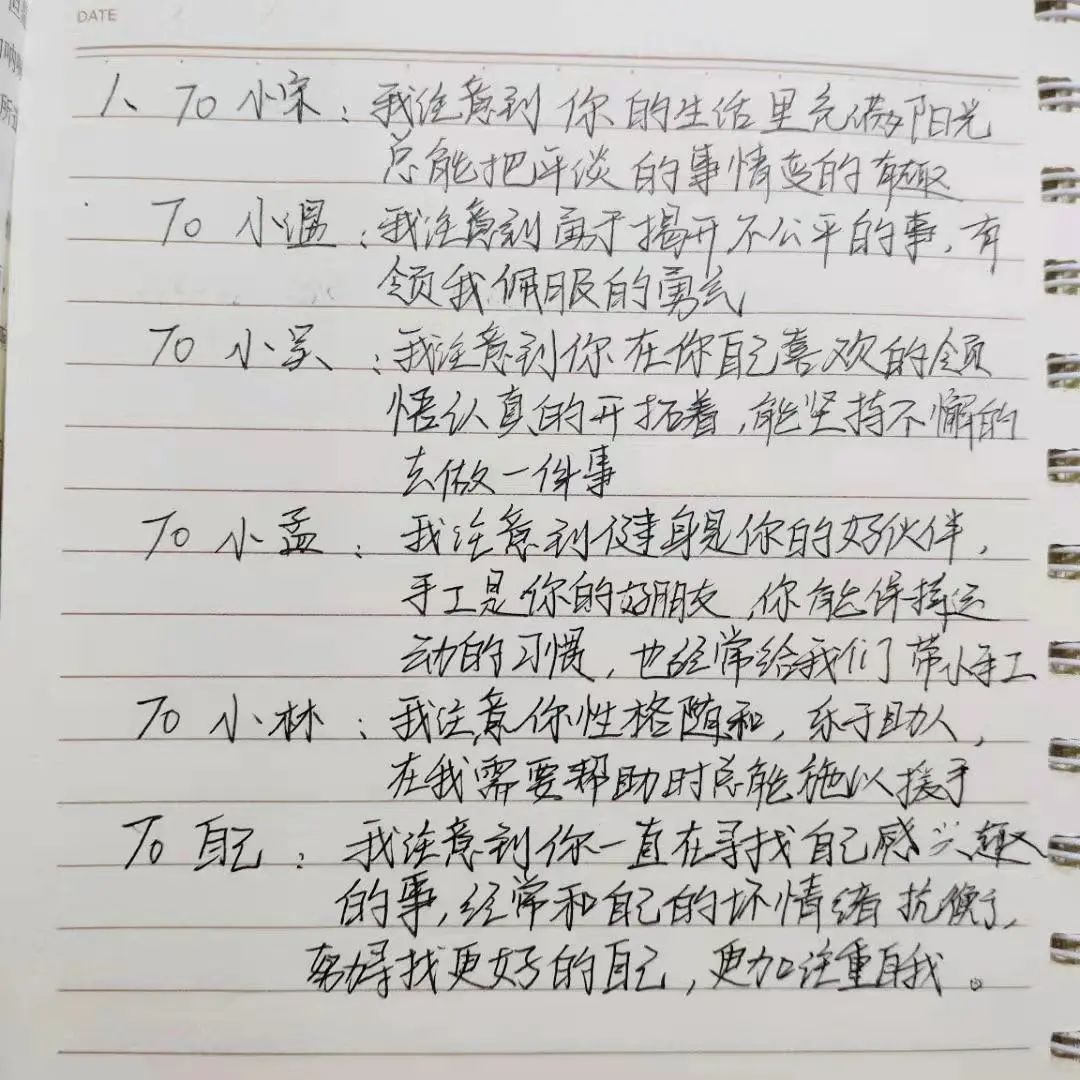 DATE
1、To 小宋：我注意到你的生活里充满阳光
总能把平淡的事情变的有趣
To 小温：我注意到勇于揭开不公平的事，有
领我佩服的勇气
To 小吴：我注意到你在你自己喜欢的领
悟认真的开拓着，能坚持不懈的
去做一件事
To 小孟：我注意到健身是你的好伙伴，
手工是你的好朋友，你能保持运
动的习惯，也经常给我们带小手工
To 小林：我注意你性格随和，乐于助人，
在我需要帮助时总能施以援手
To 自己：我注意到你一直在寻找自己感兴趣
的事，经常和自己的坏情绪抗衡，
努力寻找更好的自己，更加注重自我。